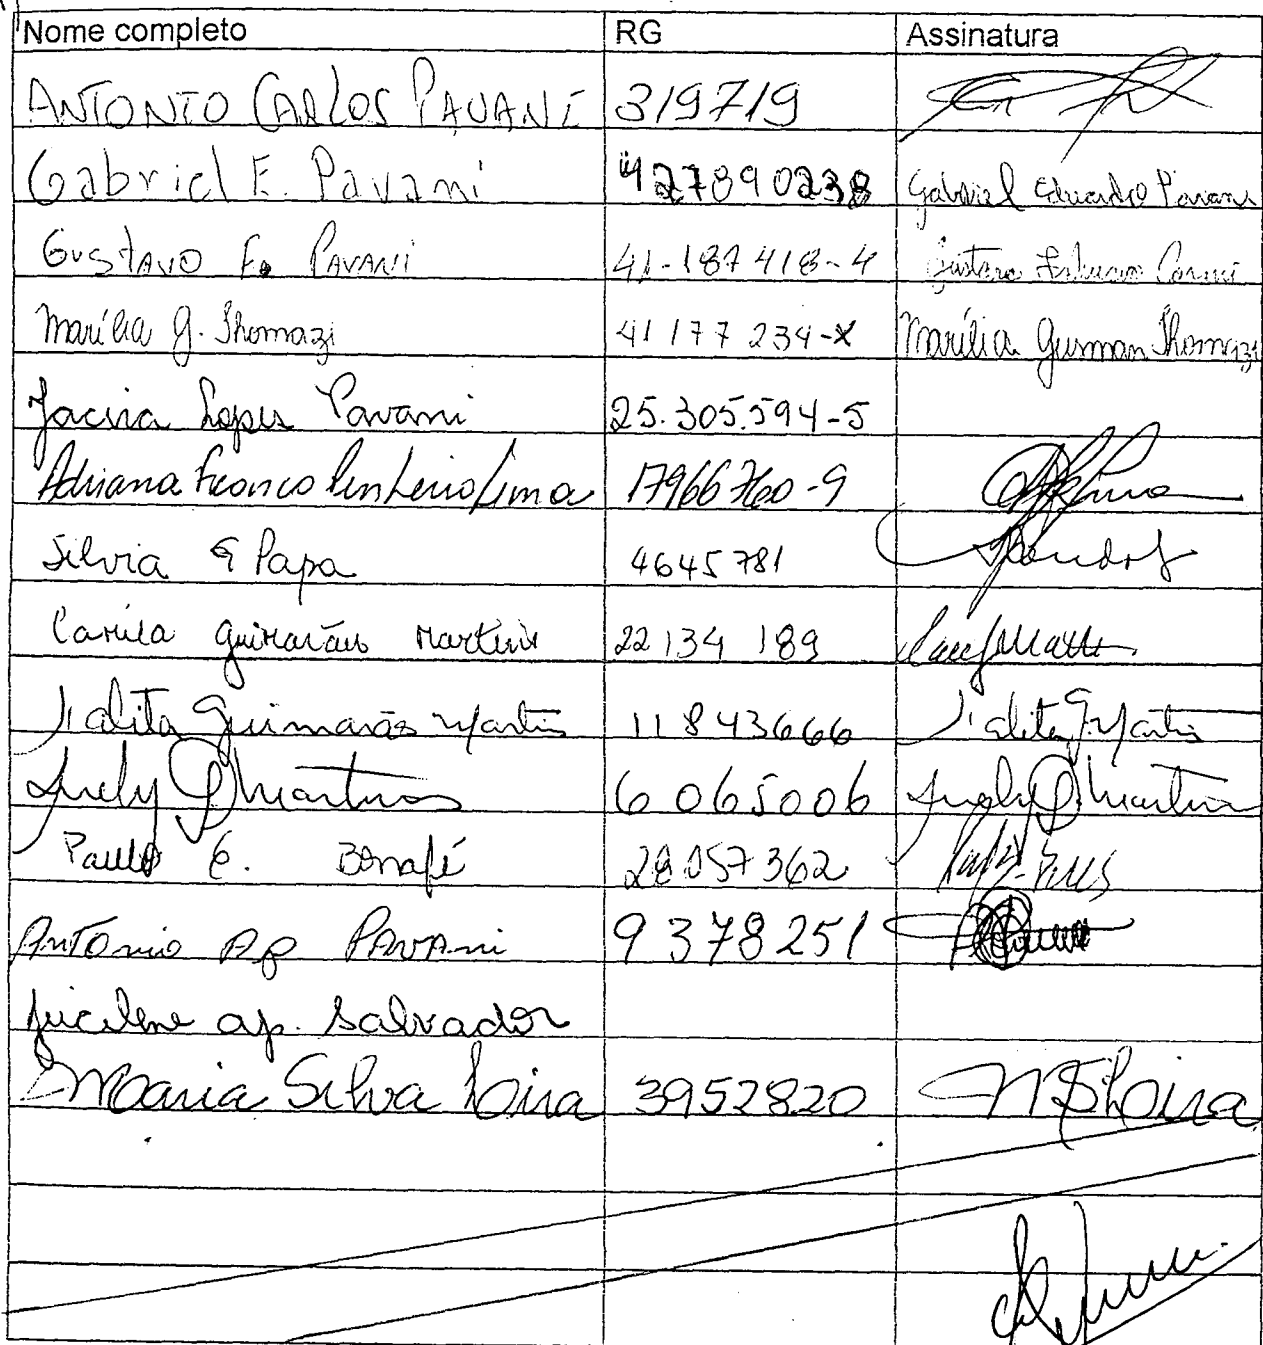 Nome completo RG Assinatura
ANTONIO CARLOS PAVANI 319719
Gabriel E. Pavani 427890238 Gabriel Eduardo Pavani
GUSTAVO E. PAVANI 41-187418-4 Gustavo Pavani
Marília G. Thomazi 41177234-X Marília Gusman Thomazi
Jacira Lopes Pavani 25.305.594-5
Adriana Franco Penteriolima 17966760-9
Silvia G Papa 4645781
Camila Guimarães Martins 22134 189
Talita Guimarães Martins 11843666 Talita G. Martins
Suely G Martins 6065006 Suely G. Martins
Paulo E. Bonafé 28057362
Antonio Ap PAVANi 9378251
Jucilene ap. Salvador
Maria Silva Loira 3952820 M S Loira